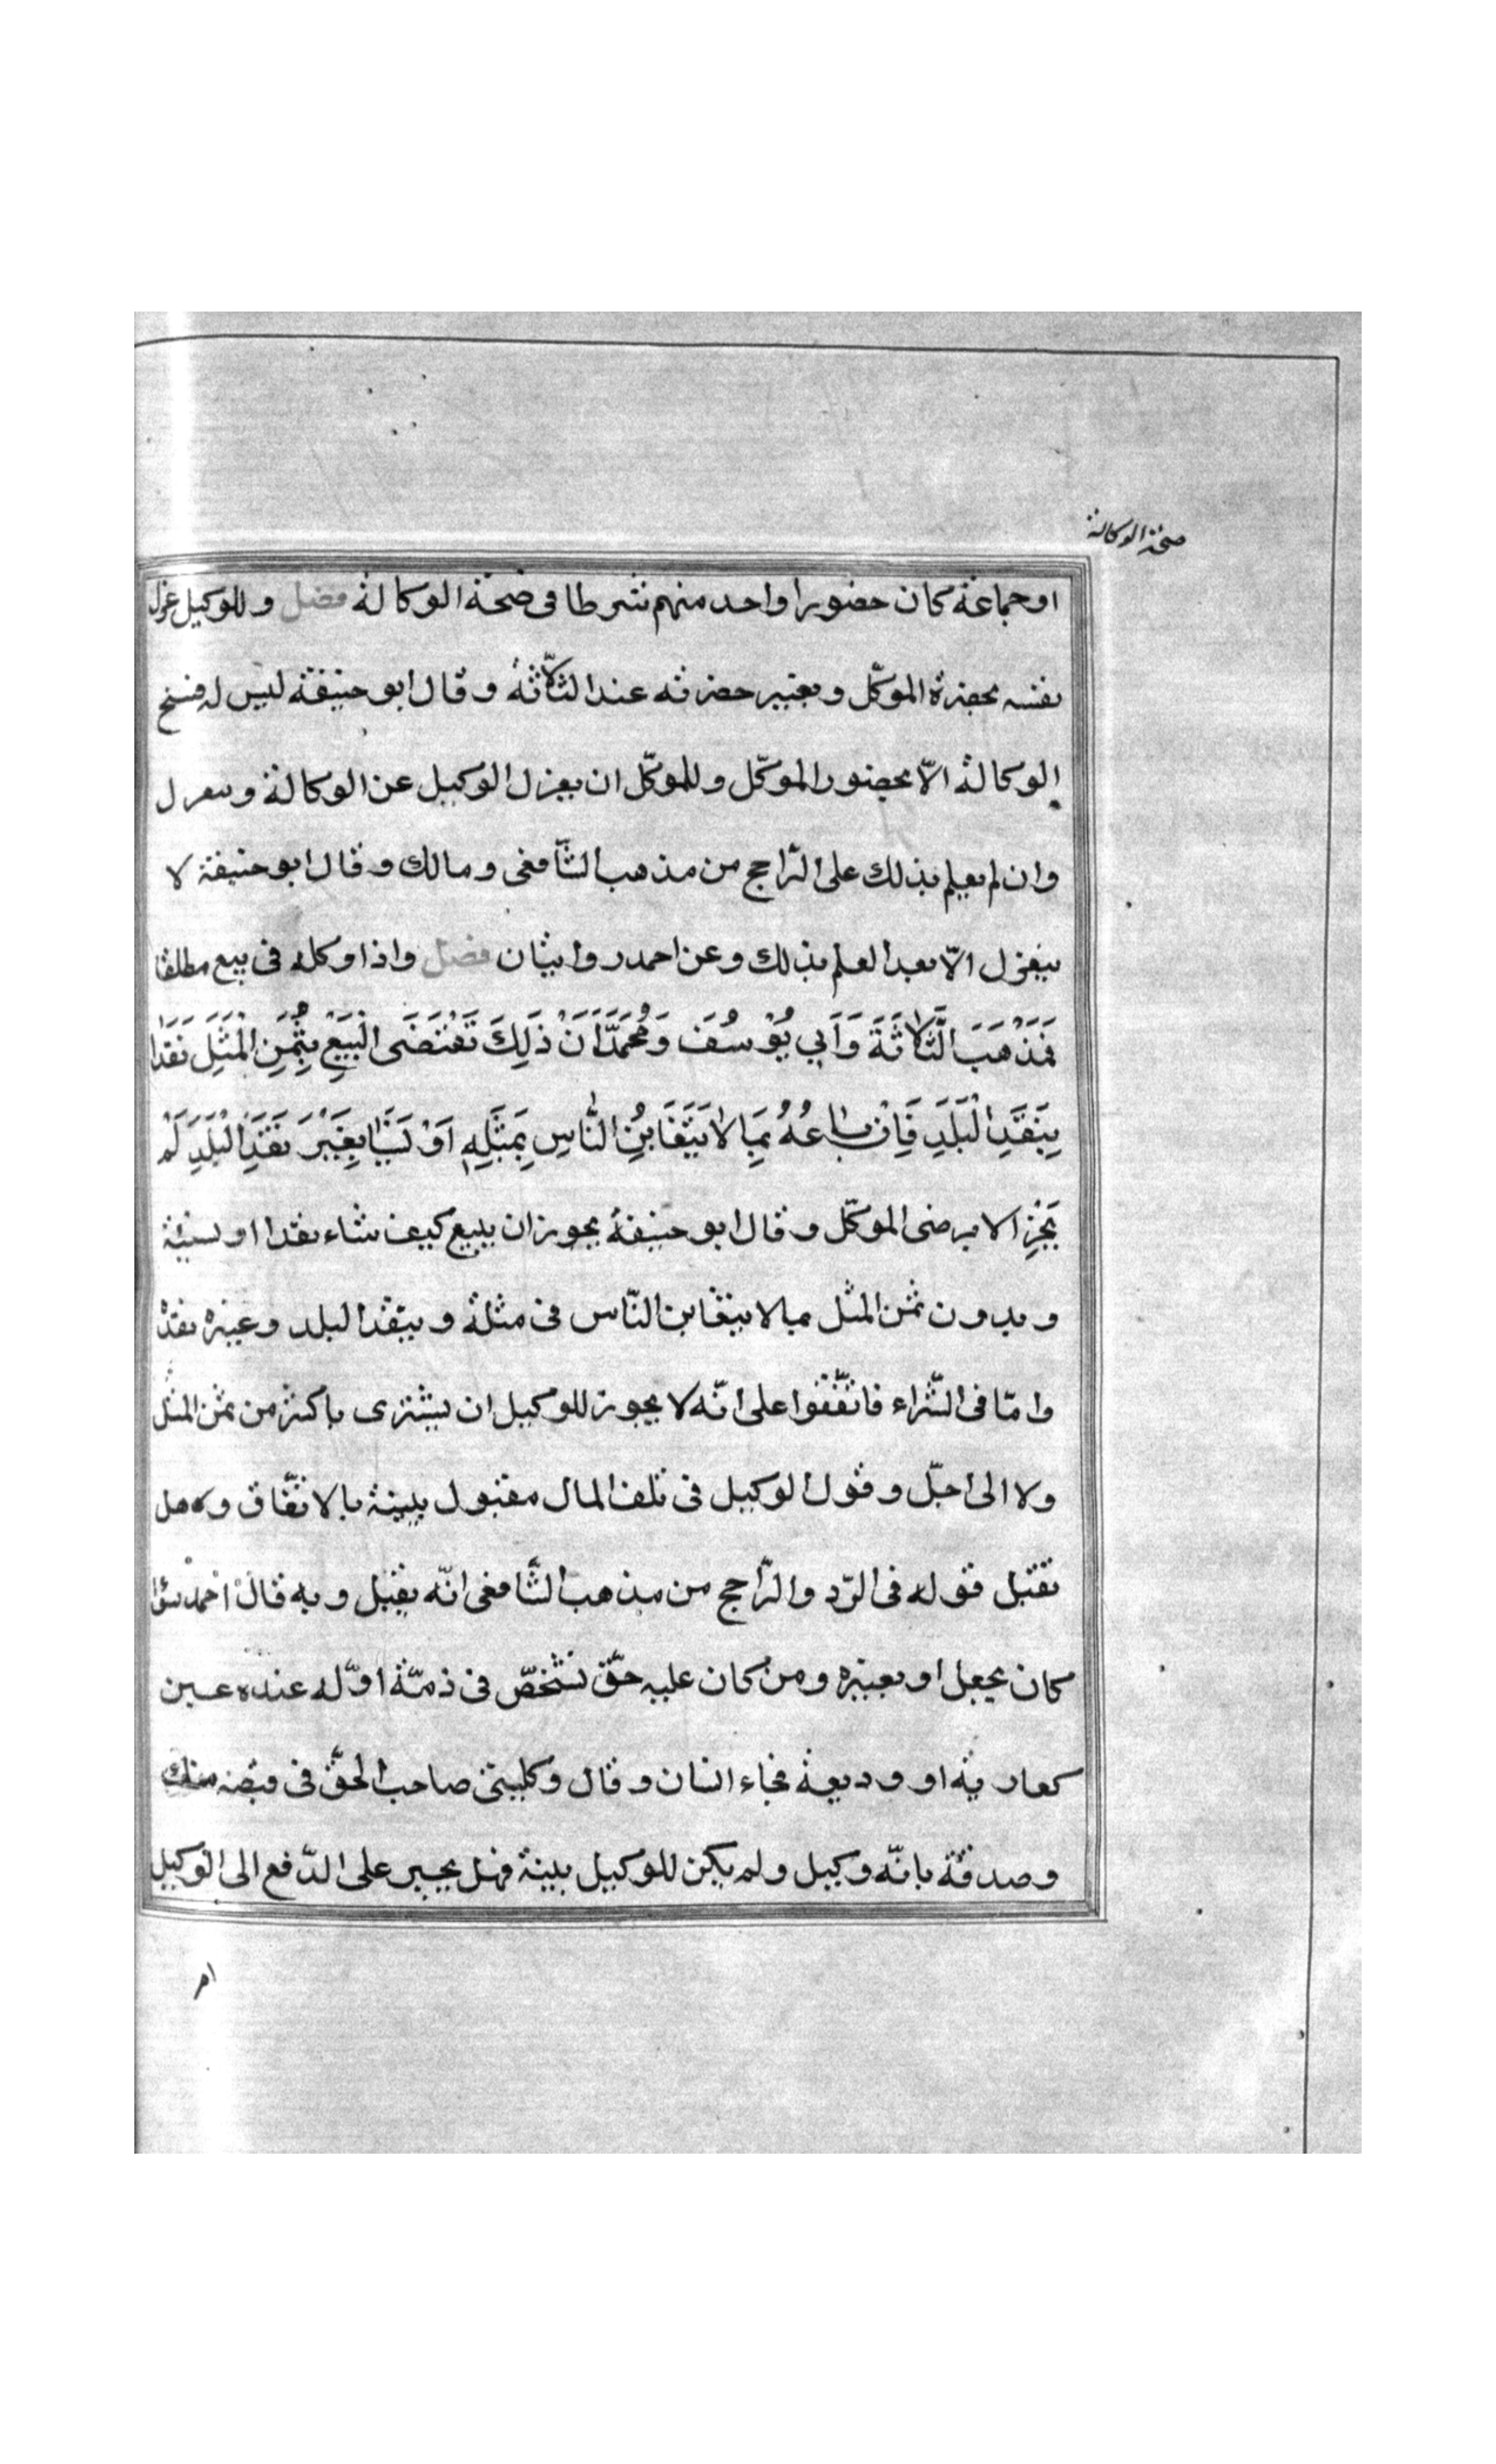 صحة الوكالة
او جماعة كان حضور واحد منهم شرطا فى صحة الوكالة فصل وللوكيل عزل
نفسه بحضرة الموكّل وبغير حضرته عند الثّلاثة وقال ابو حنيفة ليس له فسخ
الوكالة الّا بحضور الموكّل وللموكّل ان يعزل الوكيل عن الوكالة وينعزل
وان لم يعلم بذلك على الرّاجح من مذهب الشّافعى ومالك وقال ابو حنيفة لا
ينعزل الّا بعد العلم بذلك وعن احمد روايتان فصل واذا وكله فى بيع مطلقا
فَمَذْهَبَ الثَّلَاثَةَ وَاَبِي يُوْسُفَ وَمُحَمَّدًا اَنَ ذَلِكَ تَقْتَضَى الْبَيْعِ بِثَمَنِ الْمَثَلَ نَقَدَا
بِنَقَدِ الْبَلَدِ فَاِنْ بَاعَهُ بِمَا لَا يَتَغَابَنُ النَّاسِ بِمَثَلِهِ اَوْ نَسَيَا بِغَيْرَ نَقَدَ الْبَلَدِ لَمْ
يَجُزِ الا برضى الموكّل وقال ابو حنيفة يجوز ان يبيع كيف شاء نقدا او نسئية
وبدون ثمن المثل مبالا يتغابن النّاس فى مثلة وبنقد البلد وغيره نقدا
وامّا فى الشّراء فاتّفقوا على انّه لا يجوز للوكيل ان يشترى باكثر من ثمن المثل
ولا الى اجلّ وقول الوكيل فى تلف المال مقبول بلينة بالاتّفاق وهل
تقبل قوله فى الرّد والرّاجح من مذهب الشّافعى انّه يقبل وبه قال احمد سوا
كان بجعل او بغيره ومن كان عليه حقّ لشخصّ فى ذمّة او له عنده عين
كعارية او وديعة فجاء انسان وقال وكلينى صاحب الحقّ فى قبضه منك
وصدقة بانّه وكيل ولم يكن للوكيل بلينة فهل يجبر على الدّفع الى الوكيل
ام